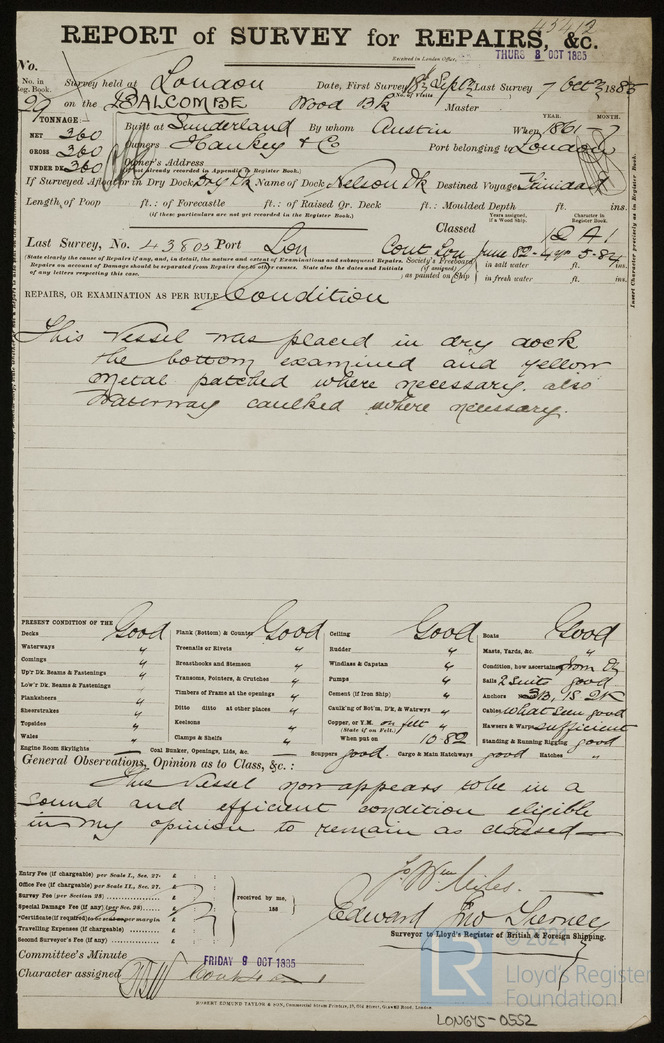 45412
REPORT of SURVEY for REPAIRS, &c.
Received in London Office, THURS 8 OCT 1885
No.
No. in Reg. Book. Survey held at London Date, First Survey 18th Sept Last Survey 7 Octr 1885
29 on the BALCOMBE Wood Bk No. of Visits Master
TONNAGE: YEAR. MONTH.
NET 360 Built at Sunderland By whom Austin When 1861 7
GROSS 360 Owners Hankey & Co Port belonging to London
UNDER DK 360 Owner's Address
(if not already recorded in Appendix to Register Book.)
If Surveyed Afloat or in Dry Dock Dry Dk Name of Dock Nelson Dk Destined Voyage Trinidad
Length of Poop ft.: of Forecastle ft.: of Raised Qr. Deck ft.: Moulded Depth ft. ins.
(if these particulars are not yet recorded in the Register Book.)
Years assigned, if a Wood Ship. Character in Register Book.
Classed A 1
Last Survey, No. 43805 Port Lon Cont Lon June 82 - 4 yrs 5.84
(State clearly the cause of Repairs if any, and, in detail, the nature and extent of Examinations and subsequent Repairs. Society's Freeboard in salt water ft. ins.
Repairs on account of Damage should be separated from Repairs due to other causes. State also the dates and Initials (if assigned)
of any letters respecting this case. as painted on Ship in fresh water ft. ins.
Insert Character precisely as in Register Book.
REPAIRS, OR EXAMINATION AS PER RULE Condition
This Vessel was placed in dry dock
the bottom examined and yellow
metal patched where necessary. also
Waterway caulked where necessary.
PRESENT CONDITION OF THE
Decks Good
Waterways "
Comings "
Up'r Dk. Beams & Fastenings "
Low'r Dk. Beams & Fastenings "
Planksheers "
Sheerstrakes "
Topsides "
Wales "
Engine Room Skylights —
Plank (Bottom) & Counter Good
Treenails or Rivets "
Breasthooks and Stemson "
Transoms, Pointers, & Crutches "
Timbers of Frame at the openings "
Ditto ditto at other places "
Keelsons "
Clamps & Shelfs "
Coal Bunker, Openings, Lids, &c. —
Ceiling Good
Rudder "
Windlass & Capstan "
Pumps "
Cement (if Iron Ship) "
Caulk'ng of Bot'm, D'k, & Watrwys "
Copper, or Y.M. on felt
(State if on Felt.)
When put on 10.82
Scuppers good. Cargo & Main Hatchways good Hatches "
Boats Good
Masts, Yards, &c. "
Condition, how ascertained from Dk
Sails 2 Suits good
Anchors No. 3B, 1S, 2K
Cables what seen good
Hawsers & Warps sufficient
Standing & Running Rigging good
General Observations, Opinion as to Class, &c.:
This Vessel now appears to be in a
sound and efficient condition eligible
in my opinion to remain as classed
Entry Fee (if chargeable) per Scale I., Sec. 27- £
Office Fee (if chargeable) per Scale II., Sec. 27. £
Survey Fee (per Section 28) £
Special Damage Fee (if any) (per Sec. 28) £
*Certificate (if required) to be sent as per margin
Travelling Expenses (if chargeable) £
Second Surveyor's Fee (if any) £
received by me, 188
Jos Wm Miles.
Edward Jno Tierney
Surveyor to Lloyd's Register of British & Foreign Shipping.
Committee's Minute FRIDAY 9 OCT 1885
Character assigned
ROBERT EDMUND TAYLOR & SON, Commercial Steam Printers, 19, Old Street, Goswell Road, London
© 2021
LR
Lloyd's Register
Foundation
LON645-0552